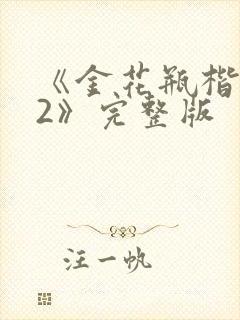 《金花瓶楷
2》完整版
汪一帆